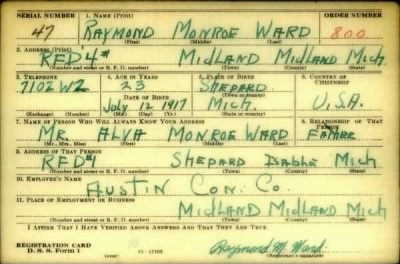 SERIAL NUMBER 1. NAME (Print) ORDER NUMBER
47 RAYMOND MONROE WARD 800
(First) (Middle) (Last)
2. ADDRESS (Print)
RFD 4# MIDLAND MIDLAND MICH
(Number and street or R. F. D. number) (Town) (County) (State)
3. TELEPHONE 4. AGE IN YEARS 5. PLACE OF BIRTH 6. COUNTRY OF CITIZENSHIP
7102 W2 23 SHEPARD
(Town or county)
DATE OF BIRTH
July 12 1917 MICH. U.S.A.
(Exchange) (Number) (Mo.) (Day) (Yr.) (State or country)
7. NAME OF PERSON WHO WILL ALWAYS KNOW YOUR ADDRESS 8. RELATIONSHIP OF THAT PERSON
MR. ALVA MONROE WARD FATHER
(Mr., Mrs., Miss) (First) (Middle) (Last)
9. ADDRESS OF THAT PERSON
RFD #1 SHEPARD ISABELLE MICH
(Number and street or R. F. D. number) (Town) (County) (State)
10. EMPLOYER'S NAME
AUSTIN CON. CO.
11. PLACE OF EMPLOYMENT OR BUSINESS
MIDLAND MIDLAND MICH
(Number and street or R. F. D. number) (Town) (County) (State)
I AFFIRM THAT I HAVE VERIFIED ABOVE ANSWERS AND THAT THEY ARE TRUE.
REGISTRATION CARD
D. S. S. Form 1 (over) Raymond M. Ward
(Registrant's signature)